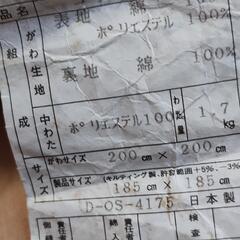 品名
表地 綿 100%
ポリエステル
組 がわ生地
裏地 綿 100%
成 中わた ポリエステル100%
わた重量 1.7kg
サイズ がわサイズ 200cm × 200cm
製品サイズ (キルティング製、許容範囲+5%、-3%)
185cm × 185cm
D-OS-4175 日本製
責任者
綿入
責任者
検査